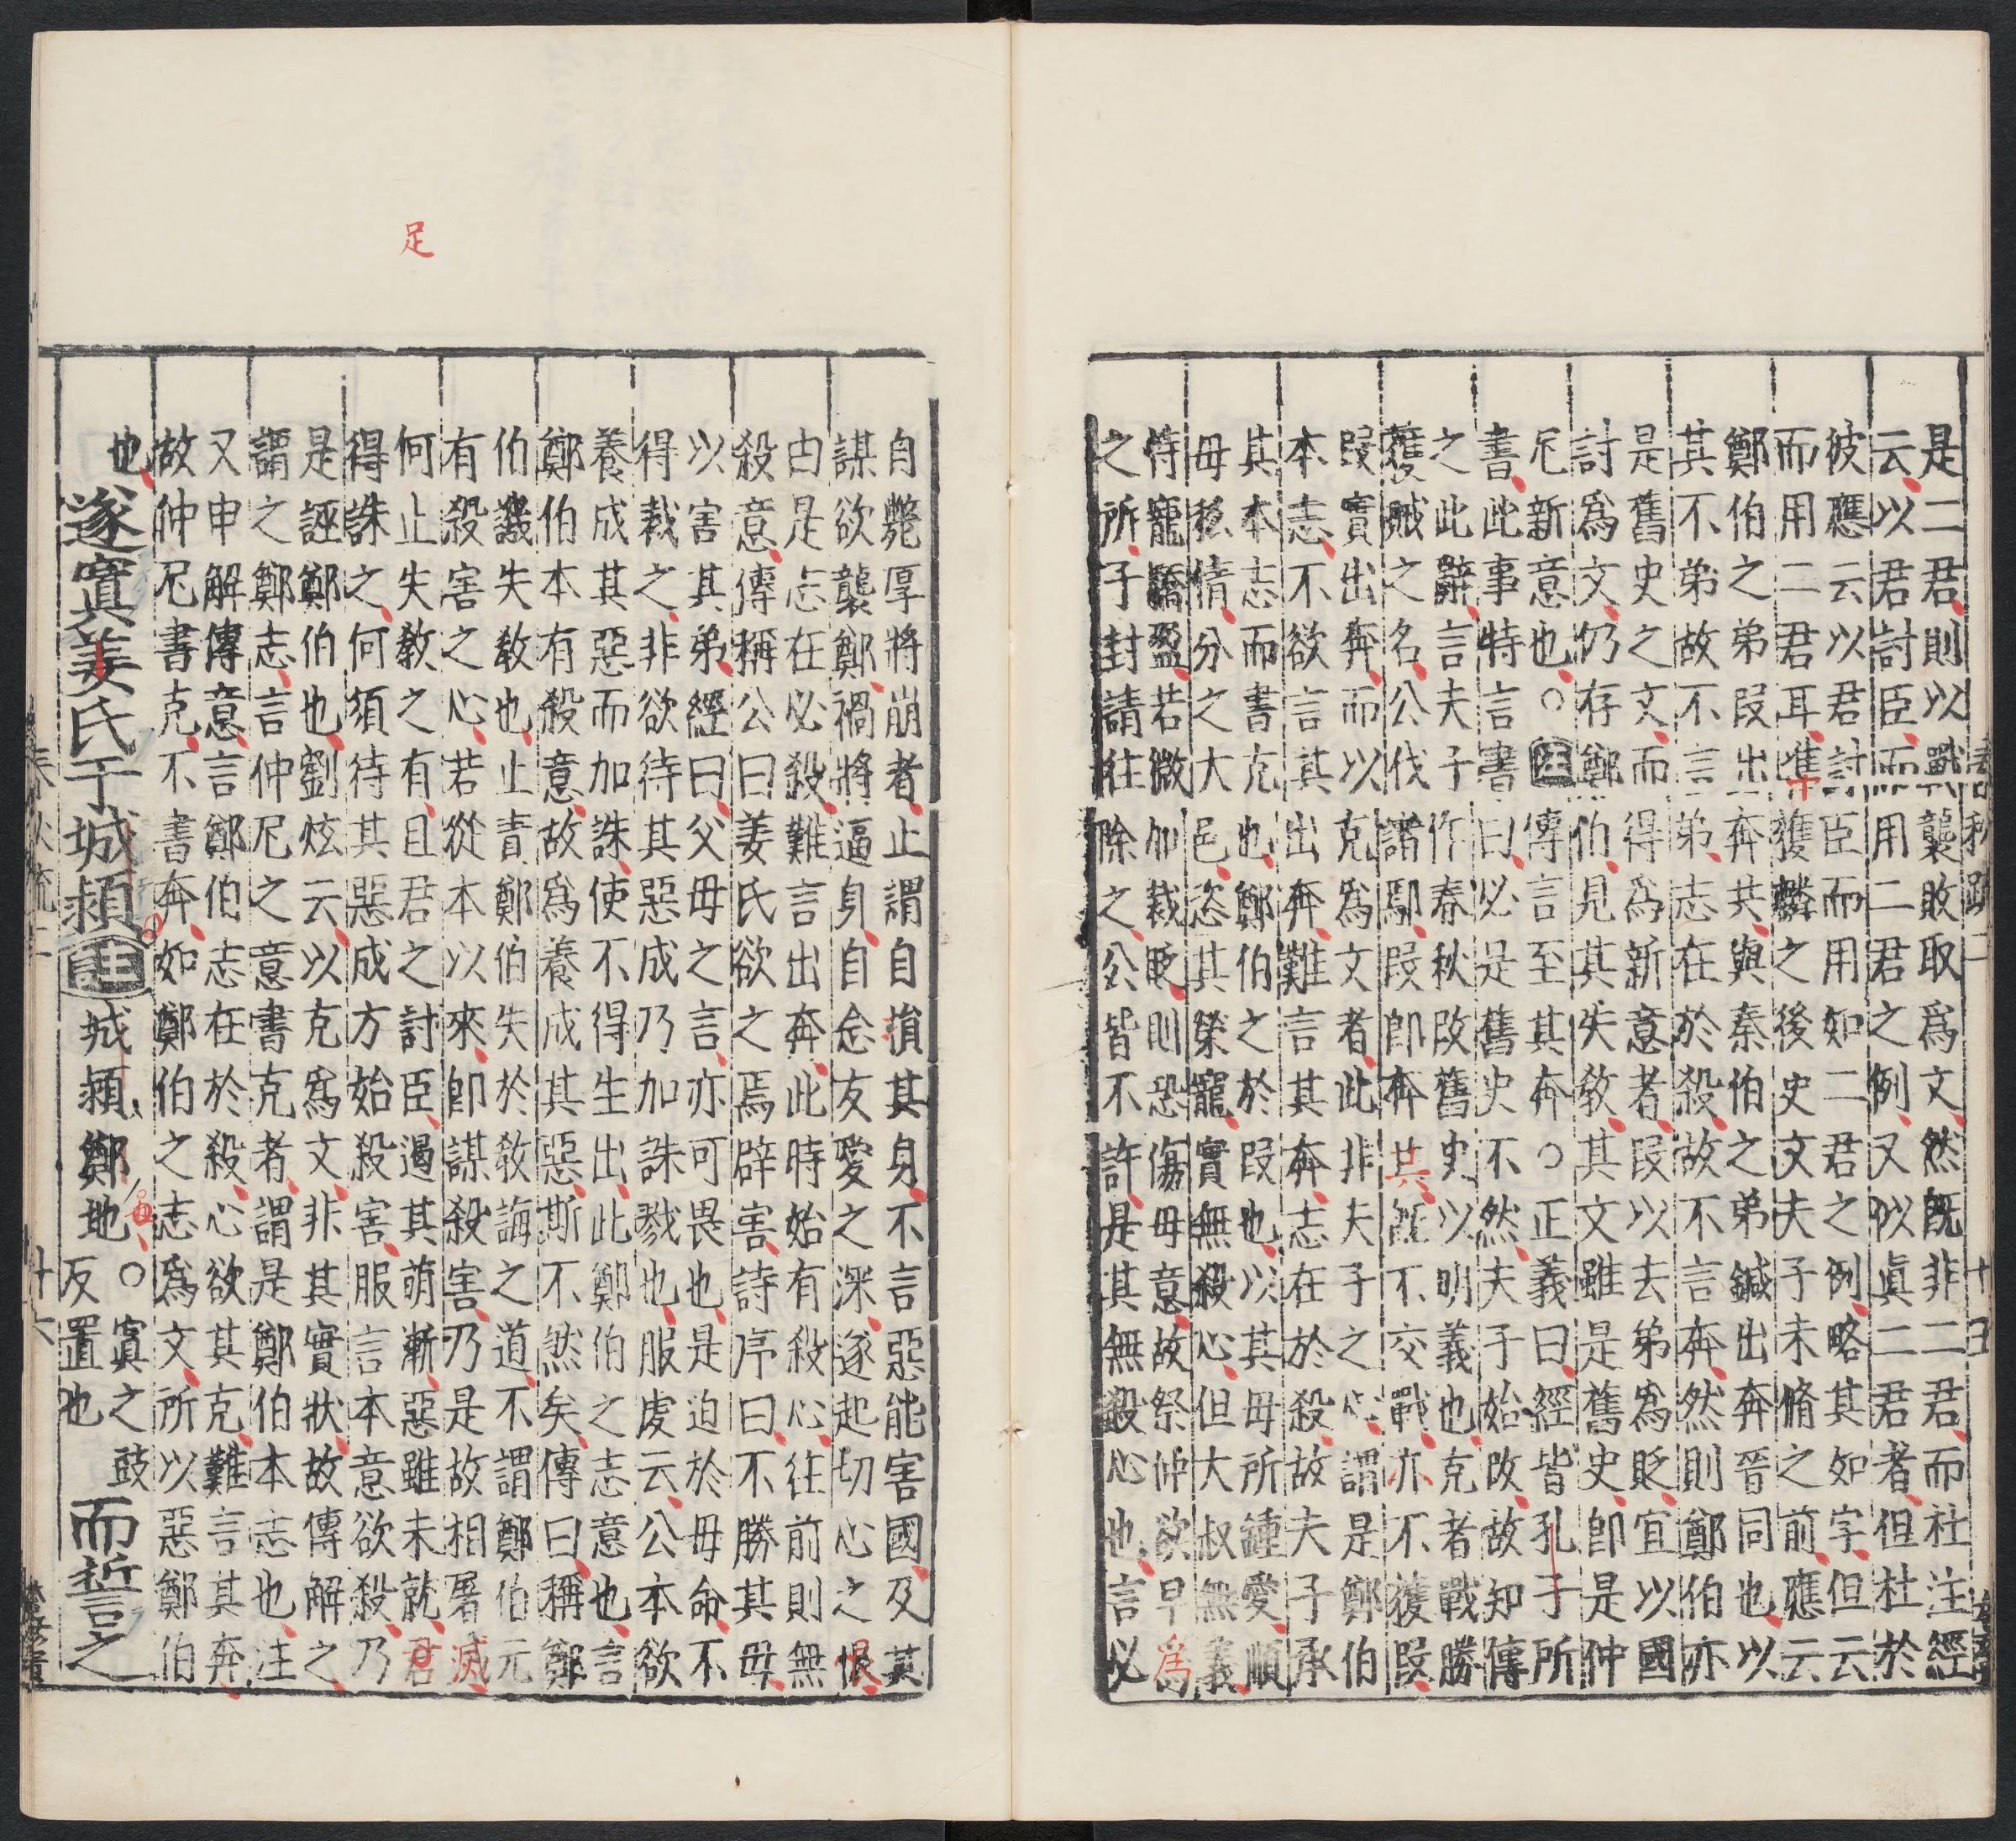 是二君則以戰襲敗取爲文然既非二君而杜注經
云以君討臣而用二君之例又似眞二君者但杜於
彼應云以君討臣而用如二君之例略其如字但云
而用二君耳準獲麟之後史文夫子未脩之前應云
鄭伯之弟段出奔共與秦伯之弟鍼出奔晉同也以
其不弟故不言弟志在於殺故不言奔然則鄭伯亦
是舊史之文而得爲新意者段以去弟爲貶宜以國
討爲文仍存鄭伯見其失敎其文雖是舊史即是仲
尼新意也○注傳言至其奔○正義曰經皆孔子所
書此事特言書曰必是舊史不然夫子始改故知傳
之此辭言夫子作春秋改舊史以明義也克者戰勝
獲賊之名公伐諸鄢段即奔共既不交戰亦不獲段
段實出奔而以克爲文者此非夫子之心謂是鄭伯
本志不欲言其出奔難言其奔志在於殺故夫子承
其本志而書克也鄭伯之於段也以其母所鍾愛順
母私情分之大邑恣其榮寵實無殺心但大叔無義
恃寵驕盈若微加裁貶則恐傷母意故祭仲欲早爲
之所子封請往除之公皆不許是其無殺心也言必
春秋疏二
十五
自斃厚將崩者止謂自損其身不言惡能害國及其
謀欲襲鄭禍將逼身自念友愛之深遂起切心之恨
由是志在必殺難言出奔此時始有殺心往前則無
殺意傳稱公曰姜氏欲之焉辟害詩序曰不勝其母
以害其弟經曰父母之言亦可畏也是迫於母命不
得裁之非欲待其惡成乃加誅戮也服虔云公本欲
養成其惡而加誅使不得生出此鄭伯之志意也言
鄭伯本有殺意故爲養成其惡斯不然矣傳曰稱鄭
伯譏失敎也止責鄭伯失於敎誨之道不謂鄭伯元
有殺害之心若從本以來即謀殺害乃是故相屠滅
何止失敎之有且君之討臣遏其萌漸惡雖未就君
得誅之何須待其惡成方始殺害服言本意欲殺乃
是誣鄭伯也劉炫云以克爲文非其實狀故傳解之
謂之鄭志言仲尼之意書克者謂是鄭伯本志也注
又申解傳意言鄭伯志在於殺心欲其克難言其奔
故仲尼書克不書奔如鄭伯之志爲文所以惡鄭伯
也遂寘姜氏于城潁注城潁鄭地○寘之豉反置也而誓之
春秋疏二
十六
足